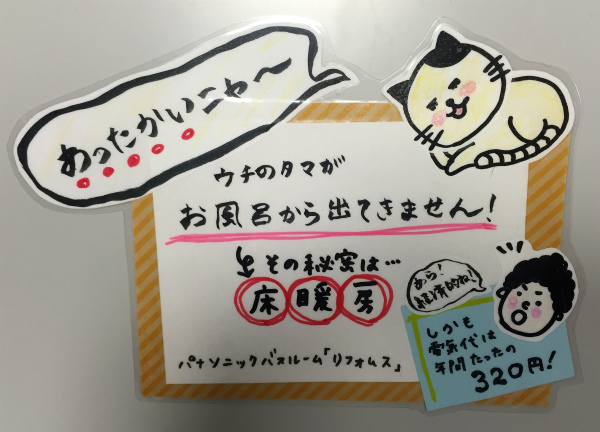 あったかいニャ〜
ウチのタマが
お風呂から出てきません!
その秘密は…
床暖房
パナソニックバスルーム「リフォムス」
あら!
経済的ね!
しかも
電気代は
年間たったの
320円!